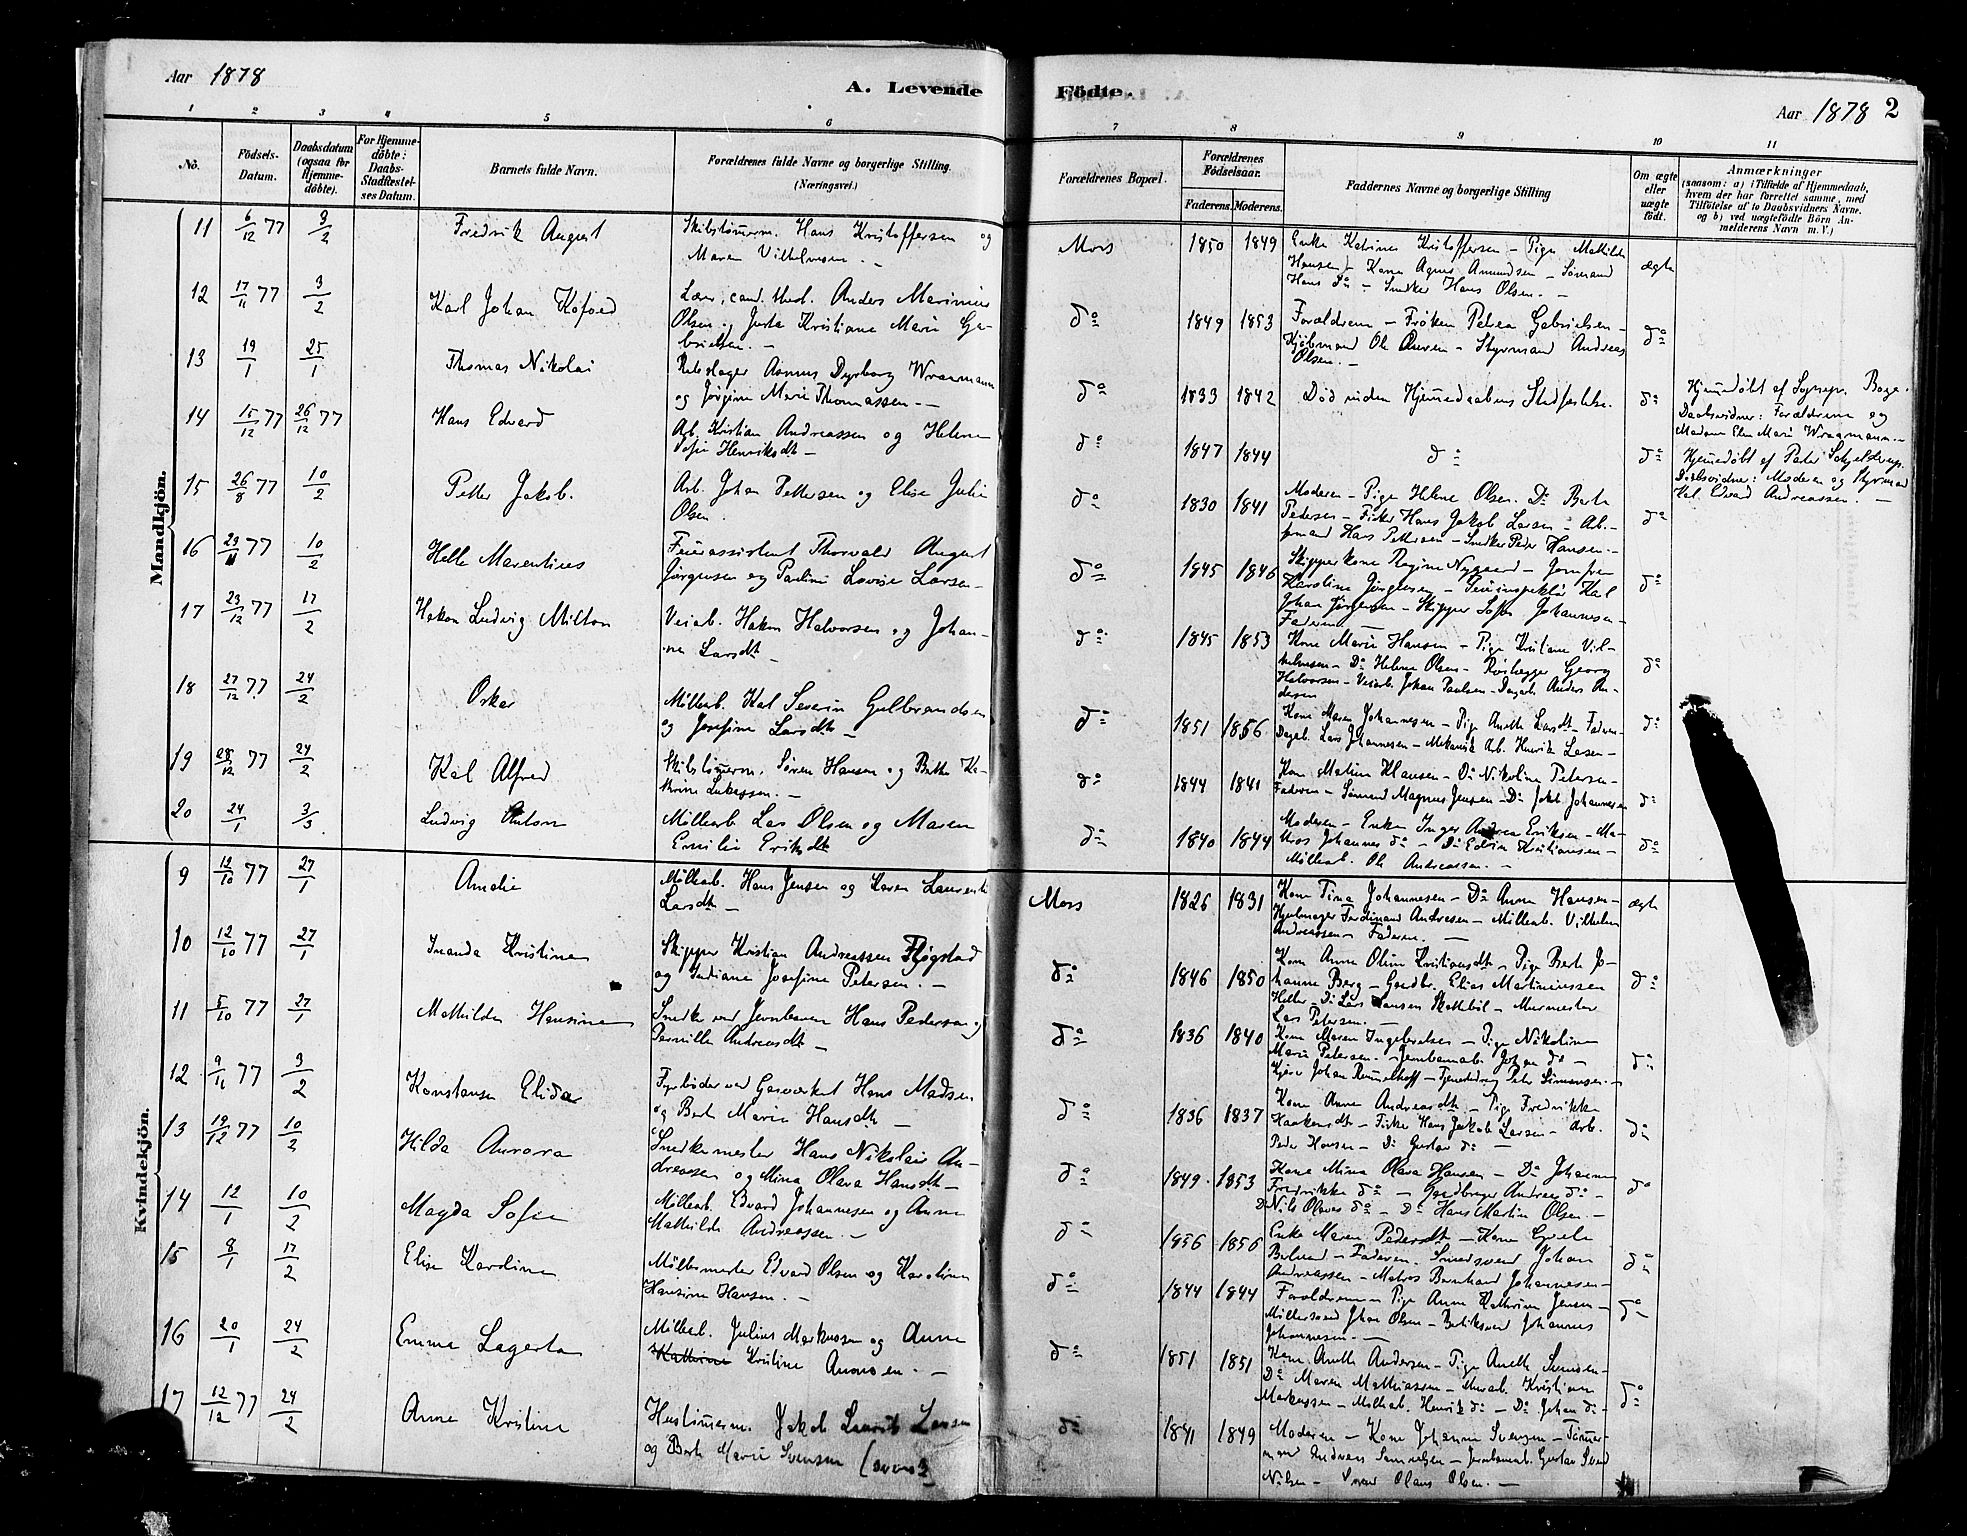 Aar 1878
A. Levende Födte.
Aar 1878 2
1 2 3 4 5 6 7 8 9 10 11
No.
Födsels-Datum.
Daabsdatum (ogsaa for Hjemme-döbte).
For Hjemme-döbte: Daabs-Stadfæstel-ses Datum.
Barnets fulde Navn.
Forældrenes fulde Navne og borgerlige Stilling (Næringsvei.)
Forældrenes Bopæl.
Forældrenes Födselsaar.
Faderens. Moderens.
Faddernes Navne og borgerlige Stilling
Om ægte eller uægte födt.
Anmærkninger
(saasom: a) i Tilfælde af Hjemmedaab,
hvem der har forrettet samme, med
Tilföielse af to Daabsvidners Navne.
og b) ved uægtefödte Börn An-
melderens Navn m. V.)
Mandkjön.
11 6/12 77 9/2 Fredrik August
Hans Kristoffersen og
Maren Vilhelmsen. –
Mors 1850 1849
Enke Katrine Kristoffersen – Pige Mathilde
Hansen – Kone Agnes Amundsen – Sömand
Hans do – Snedker Hans Olsen. –
ægte
12 17/11 77 3/2 Karl Johan Kofoed
Lærer, cand. theol. Anders Marinius
Olsen og Jutta Kristiane Marie Ga-
brielsen. –
do 1849 1853
Forældrene – Fröken Petrea Gabrielsen –
Kjöbmand Ole – Styrmand Andreas
Olsen. –
do
13 19/1 25/1 Thomas Nikolai
Rebslager Asmus Dyrborg Wraamann
og Jörgine Marie Thomassen. –
do 1833 1842
Död inden Hjemmedaabens Stadfæstelse.
do
Hjemmedöbt af Sognepr.
Daabsvidner: Forældrene og
Madam Elen Marie Wraamann. –
14 15/12 77 26/12 77 Hans Edvard
Arb. Kristian Andreassen og Helene
Sofie Henriksdt –
do 1847 1844
do
do
Hjemmedöbt af
Daabsvidner: Moderen og Styrmand
Karl Edvard Andreassen. –
15 26/8 77 10/2 Petter Jakob.
Arb. Johan Pettersen og Elise Julie
Olsen.
do 1830 1841
Moderen – Pige Helene Olsen. Do Berte
Pedersen – Fisker Hans Jakob Larsen – Ar-
Hans Pettersen – Snedker Peder Hansen. –
do
16 23/11 77 10/2 Helle Marentius
Feierassistent Thorvald August
Jörgensen og Pauline Lovise Larsen –
do 1845 1846
Skipperkone Regine Nygaard – Jomfru
Karoline Jörgensen – Feierinspektör Karl
Johan Jörgensen – Skipper Johannesen –
Faderen –
do
17 23/12 77 17/2 Hakon Ludvig Milton
Veiarb. Hakon Halvorsen og Johan-
ne Larsdt –
do 1845 1853
Kone Marie Hansen – Pige Kristiane Vil-
helmsen – Do Helene Olsen – Georg
Halvorsen – Veiarb. Johan Paulsen – Dagarb. Anders An-
dersen
do
18 27/12 77 24/2 Oskar
Möllearb. Karl Severin Gulbrandsen
og Josefine Larsdt –
do 1851 1856
Kone Maren Johannesen – Pige Anette Larsdt – Faderen –
Dagarb. Lars Johannesen – Mekanisk Arb. Henrik Larsen –
do
19 28/12 77 24/2 Karl Alfred
Sören Hansen og Berthe Ka-
trine Lukassen. –
do 1844 1841
Kone Matine Klausen – Do Nikoline Petersen –
Faderen – Sömand Magnus Jensen – Do Jakob Johannesen
do
20 24/1 3/3 Ludvig Anton
Möllearb. Lars Olsen og Maren
Emilie Eriksdt
do 1840 1844
Moderen – Enke Inger Andrea Eriksen – Ma-
tros Johannes do – Do Edvin Kristiansen –
Möllearb. Ole Andreassen. –
do
Kvindekjön.
9 12/10 77 27/1 Amalie
Möllearb. Hans Jensen og Karen Laurentse
Larsdt –
Mors 1826 1831
Kone Tina Johannesen – Do Anne Hansen –
Hjulmager Ferdinand Andresen – Möllearb. Vilhelm
Andreassen – Faderen. –
ægte
10 12/10 77 27/1 Inanda Kristine
Skipper Kristian Andreassen Flögstad
og Indiane Josefine Petersen. –
do 1846 1850
Kone Anne Oline Kristiansdt – Pige Berte Jo-
hanne Berg – Gaardbr. Elias Martiniussen
Heller – Do Lars Hansen Skatteböl – Murmester
Lars Petersen. –
do
11 5/10 77 27/1 Mathilde Hansine
Snedker ved Jernbanen Hans Pedersen og
Pernille Andreasdt –
do 1836 1840
Kone Maren Ingebretsen – Pige Nikoline
Marie Petersen – Jernbanearb. Johan do –
Johan Rummelhoff – Tjenestedreng Peter Simensen. –
do
12 9/11 77 3/2 Konstanse Elida
Fyrböder ved Gasværket Hans Madsen
og Berte Marie Hansdt –
do 1836 1837
Kone Anne Andreasdt – Pige Fredrikke
Haakensdt – Fisker Hans Jakob Larsen – Arb.
Peder Hansen – Do Gustav do –
do
13 19/12 77 10/2 Hilda Aurora
Snedkermester Hans Nikolai An-
dreassen og Mina Olava Hansdt –
do 1849 1853
Kone Mina Olava Hansen – Do Johanne
Fredrikke do – Gaardbruger Andreas do –
Do Nils Olaves do – Do Hans Martin Olsen. –
do
14 12/1 10/2 Magda Sofie
Möllearb. Edvard Johannesen og Anne
Mathilde Andreassen. –
do 1856 1856
Enke Maren Pedersdt – Kone Grete
Faderen. Smedsvend Johan
Andreassen – Matros Bernhard Johannesen –
do
15 8/1 17/2 Elise Karoline
Möllermester Edvard Olsen og Karoline
Hansine Hansen. –
do 1844 1844
Forældrene – Pige Anne Kathrine Jensen –
Möllersvend Johan Olsen – Johannes
Johannesen. –
do
16 20/1 24/2 Emma Lagerta
Möllearb. Julius Markussen og Anne
Kathrine Kristine Amundsen. –
do 1851 1851
Kone Anette Andersen – Pige Anette Svendsen –
Do Maren Mathiassen – Murarb. Kristian
Markussen – Möllearb. Henrik do – Do Johan do –
do
17 12/12 77 24/2 Anne Kristine
Hustömmerm. Jakob Laurits Larsen
og Berte Marie Svensen
do 1841 1849
Moderen – Kone Johanne Svensen – Tömmer-
mand Andreas Samuelsen – Jernbanearb. Gustav
Nilsen – Olaus Olsen. –